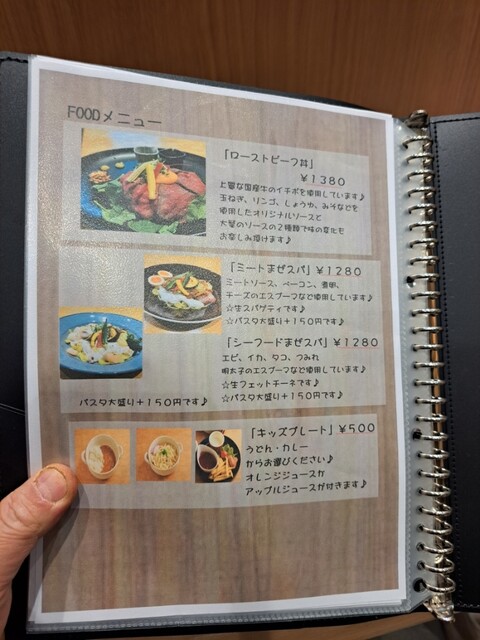 FOODメニュー
「ローストビーフ丼」
¥1380
上質な国産牛のイチボを使用しています♪
玉ねぎ、リンゴ、しょうゆ、みそなどを
使用したオリジナルソースと
大葉のソースの2種類で味の変化も
お楽しみ頂けます♪
「ミートまぜスパ」¥1280
ミートソース、ベーコン、煮卵、
チーズのエスプーマなど使用しています♪
☆生スパゲティです♪
☆パスタ大盛り+150円です♪
「シーフードまぜスパ」¥1280
エビ、イカ、タコ、つみれ
明太子のエスプーマなど使用しています♪
☆生フェットチーネです♪
☆パスタ大盛り+150円です♪
パスタ大盛り+150円です♪
「キッズプレート」¥500
うどん・カレー
からお選びください♪
オレンジジュースか
アップルジュースが付きます♪